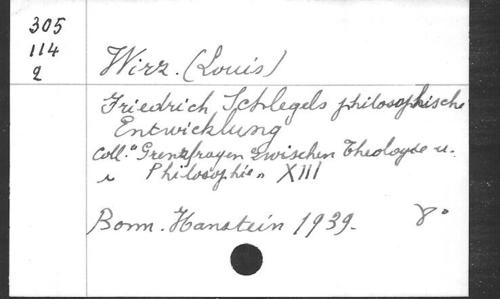 305
114
2
Wirz. (Louis)
Friedrich Schlegels philosophische
Entwicklung
Coll. "Grenzfragen zwischen Theologie u.
" Philosophie" XIII
Bonn. Hanstein 1939. 8°